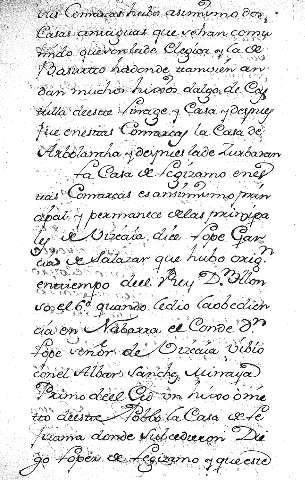 tas Comarcas hubo asimismo dos
Casas antiguas que se han comu
nido que son la de Elegior y la de
Basurto ha donde tambien an
dan muchos hixos dalgo de Cas
tilla deeste linage y Casa y despues
fue en estas Comarcas la Casa de
Arbolancha y despues la de Zurbaran
La Casa de Legizamo en es
tas Comarcas es ansimismo prin
cipal y permanece de las principa
les de Vizcaia, dice Lope Gar
cia de Salazar que hubo orig
en tiempo deel Rey D. Allon
so el 6º quando le dio la obedien
cia en Nabarra el Conde Dn
Lope señor de Vizcaia vibio
con el Albar Sanchez Minaya
Primo deel Cid un hixo o nie
to deeste Poblo la Casa de Le
zama donde subcedieron Die
go Lopez de Legizamo y que este